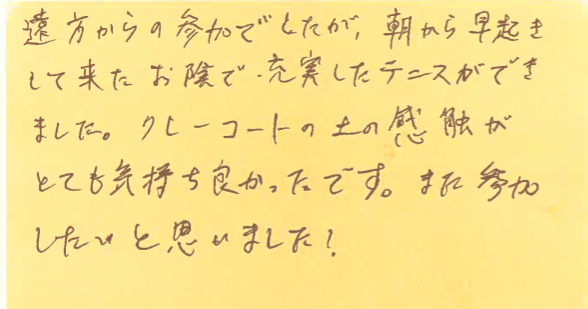 遠方からの参加でしたが、朝から早起き
して来たお陰で、充実したテニスができ
ました。クレーコートの土の感触が
とても気持ち良かったです。また参加
したいと思いました!